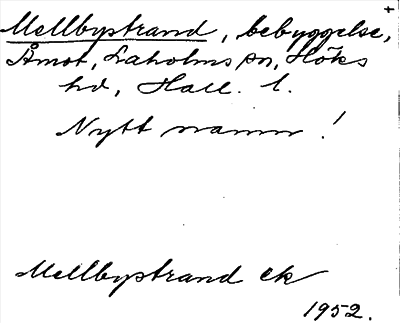 Mellbystrand, bebyggelse, +
Åmot, Laholms sn, Höks
hd, Hall. l.
Nytt namn!
Mellbystrand ek
1952.